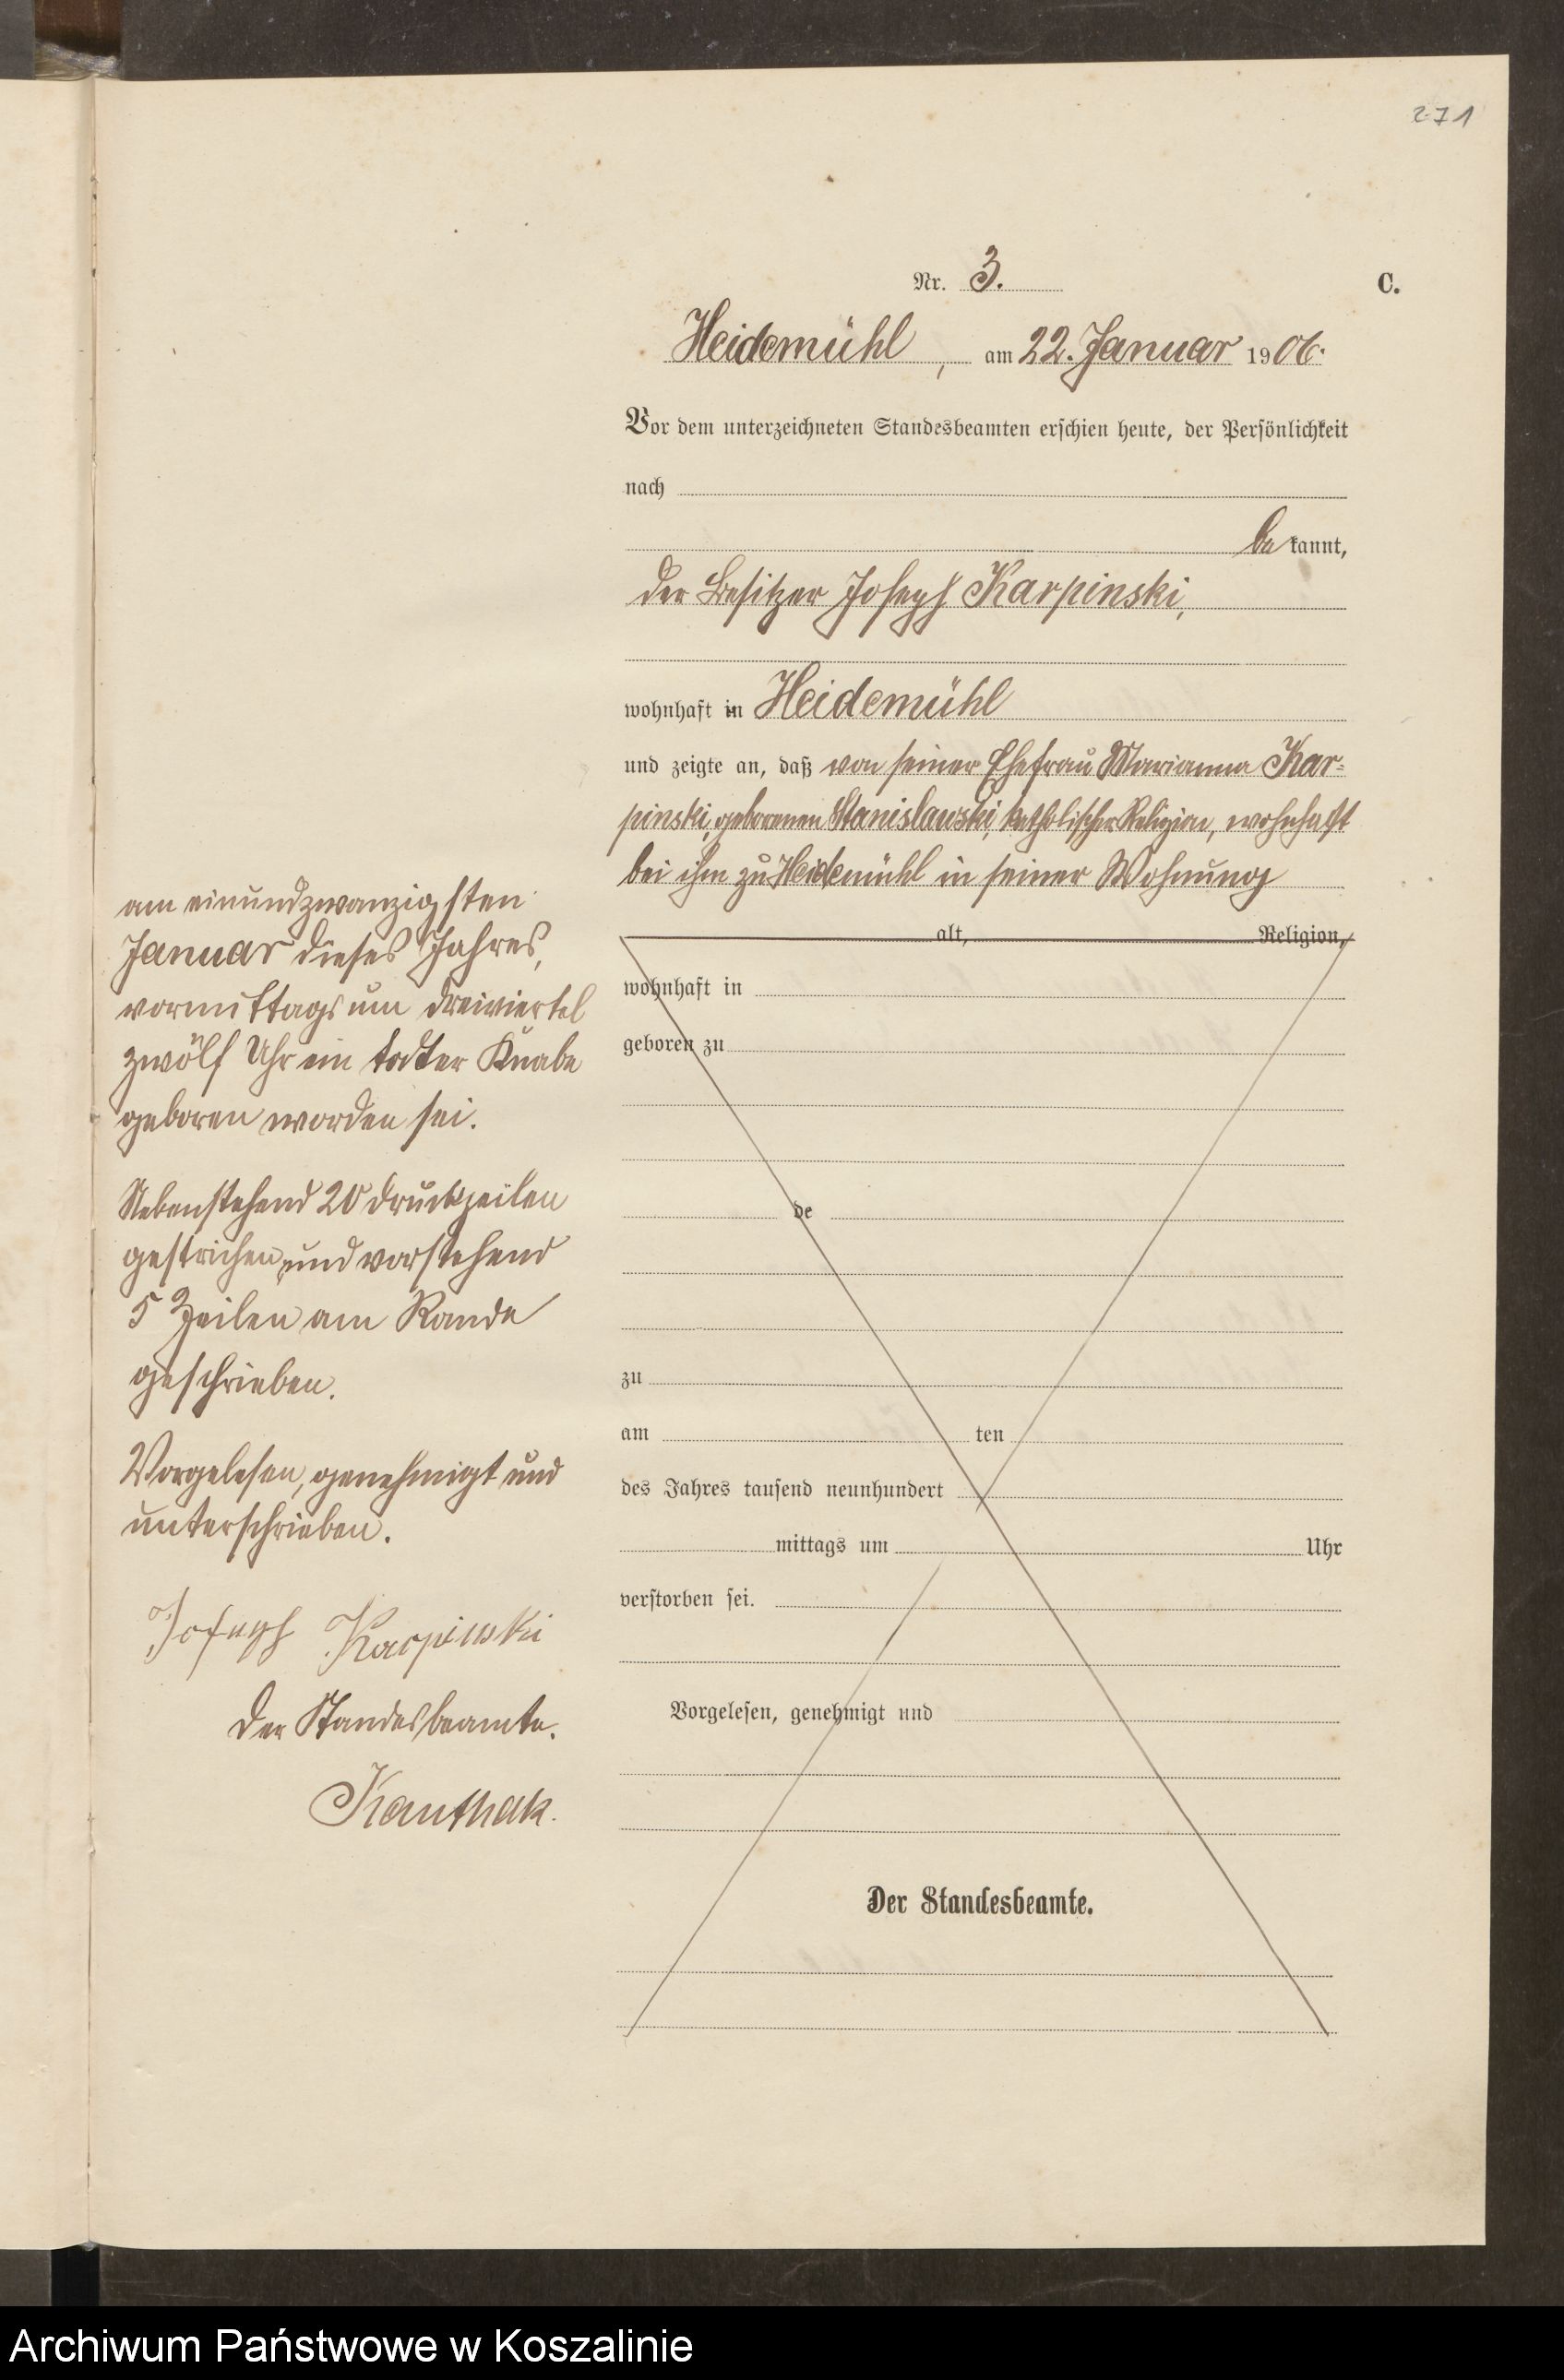 271
Nr. 3. C.
Heidemühl, am 22. Januar 1906.
Vor dem unterzeichneten Standesbeamten erschien heute, der Persönlichkeit
nach
be kannt,
der Besitzer Joseph Karpinski,
wohnhaft in Heidemühl
und zeigte an, daß von seiner Ehefrau Marianna Kar=
pinski, geborenen Stanislawski, katholischer Religion, wohnhaft
bei ihm zu Heidemühl in seiner Wohnung
alt, Religion,
wohnhaft in
geboren zu
de
zu
am ten
des Jahres tausend neunhundert
mittags um Uhr
verstorben sei.
Vorgelesen, genehmigt und
Der Standesbeamte.
am einundzwanzigsten
Januar dieses Jahres,
vormittags um dreiviertel
zwölf Uhr ein todter Knabe
geboren worden sei.
Nebenstehend 20 Druckzeilen
gestrichen und vorstehend
5 Zeilen am Rande
geschrieben.
Vorgelesen, genehmigt und
unterschrieben.
Joseph Karpinski
Der Standesbeamte.
Kanthak.
Archiwum Państwowe w Koszalinie